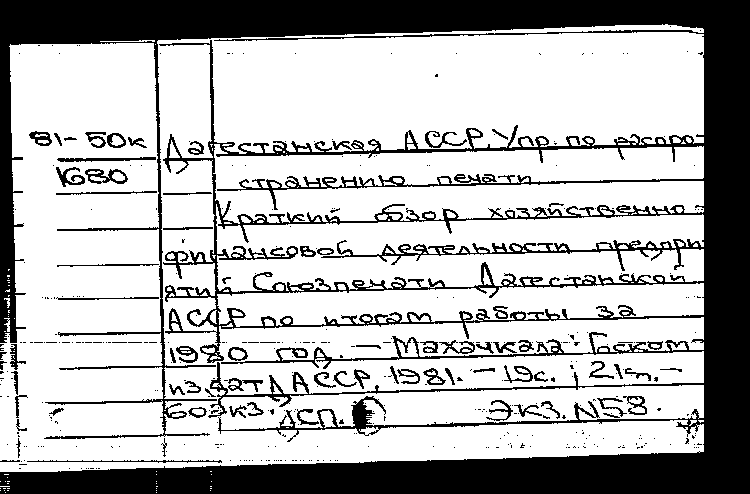 81-50к Дагестанская АССР. Упр. по распро-
1680 странению печати.
Краткий обзор хозяйственно-
финансовой деятельности предпри-
ятий Союзпечати Дагестанской
АССР по итогам работы за
1980 год. – Махачкала: Госком-
издат ДАССР, 1981. – 19с.; 21см. –
60экз. ДСП. Экз. N58.